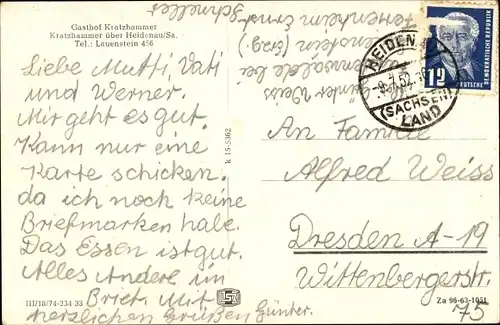 Gasthof Kratzhammer
Kratzhammer über Heidenau/Sa.
Tel.: Lauenstein 456
Liebe Mutti, Vati
und Werner.
Mir geht es gut.
Kann nur eine
Karte schicken,
da ich noch keine
Briefmarken habe.
Das Essen ist gut.
Alles Andere im
Brief. Mit
herzlichen Grüßen Günter.
III/18/74-234 33
k 15-5362
Schnellste
Günter Weiss
HEIDENAU
(SACHSEN)
LAND
12
DEUTSCHE
DEMOKRATISCHE REPUBLIK
An Familie
Alfred Weiss
Dresden A-19
Wittenbergerstr.
75
Za 96-63-1051